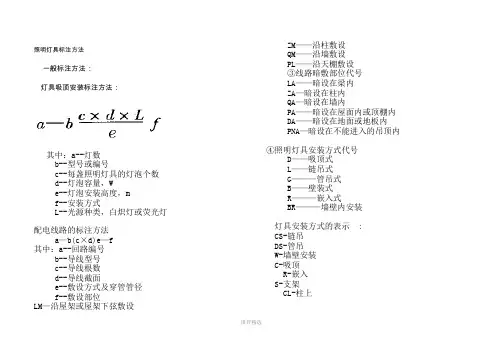 照明灯具标注方法
一般标注方法：
灯具吸顶安装标注方法：
a—b c×d×L/e f
其中：a--灯数
b--型号或编号
c--每盏照明灯具的灯泡个数
d--灯泡容量，W
e--灯泡安装高度，m
f--安装方式
L--光源种类，白炽灯或荧光灯
配电线路的标注方法
a—b(c×d)e—f
其中：a--回路编号
b--导线型号
c--导线根数
d--导线截面
e--敷设方式及穿管管径
f--敷设部位
LM—沿屋架或屋架下弦敷设
ZM——沿柱敷设
QM——沿墙敷设
PL——沿天棚敷设
③线路暗敷部位代号
LA——暗设在梁内
ZA—暗设在柱内
QA—暗设在墙内
PA——暗设在屋面内或顶棚内
DA——暗设在地面或地板内
PNA—暗设在不能进入的吊顶内
④照明灯具安装方式代号
D——吸顶式
L——链吊式
G———管吊式
B——壁装式
R———嵌入式
BR———墙壁内安装
灯具安装方式的表示 :
CS-链吊
DS-管吊
W-墙壁安装
C-吸顶
R-嵌入
S-支架
CL-柱上